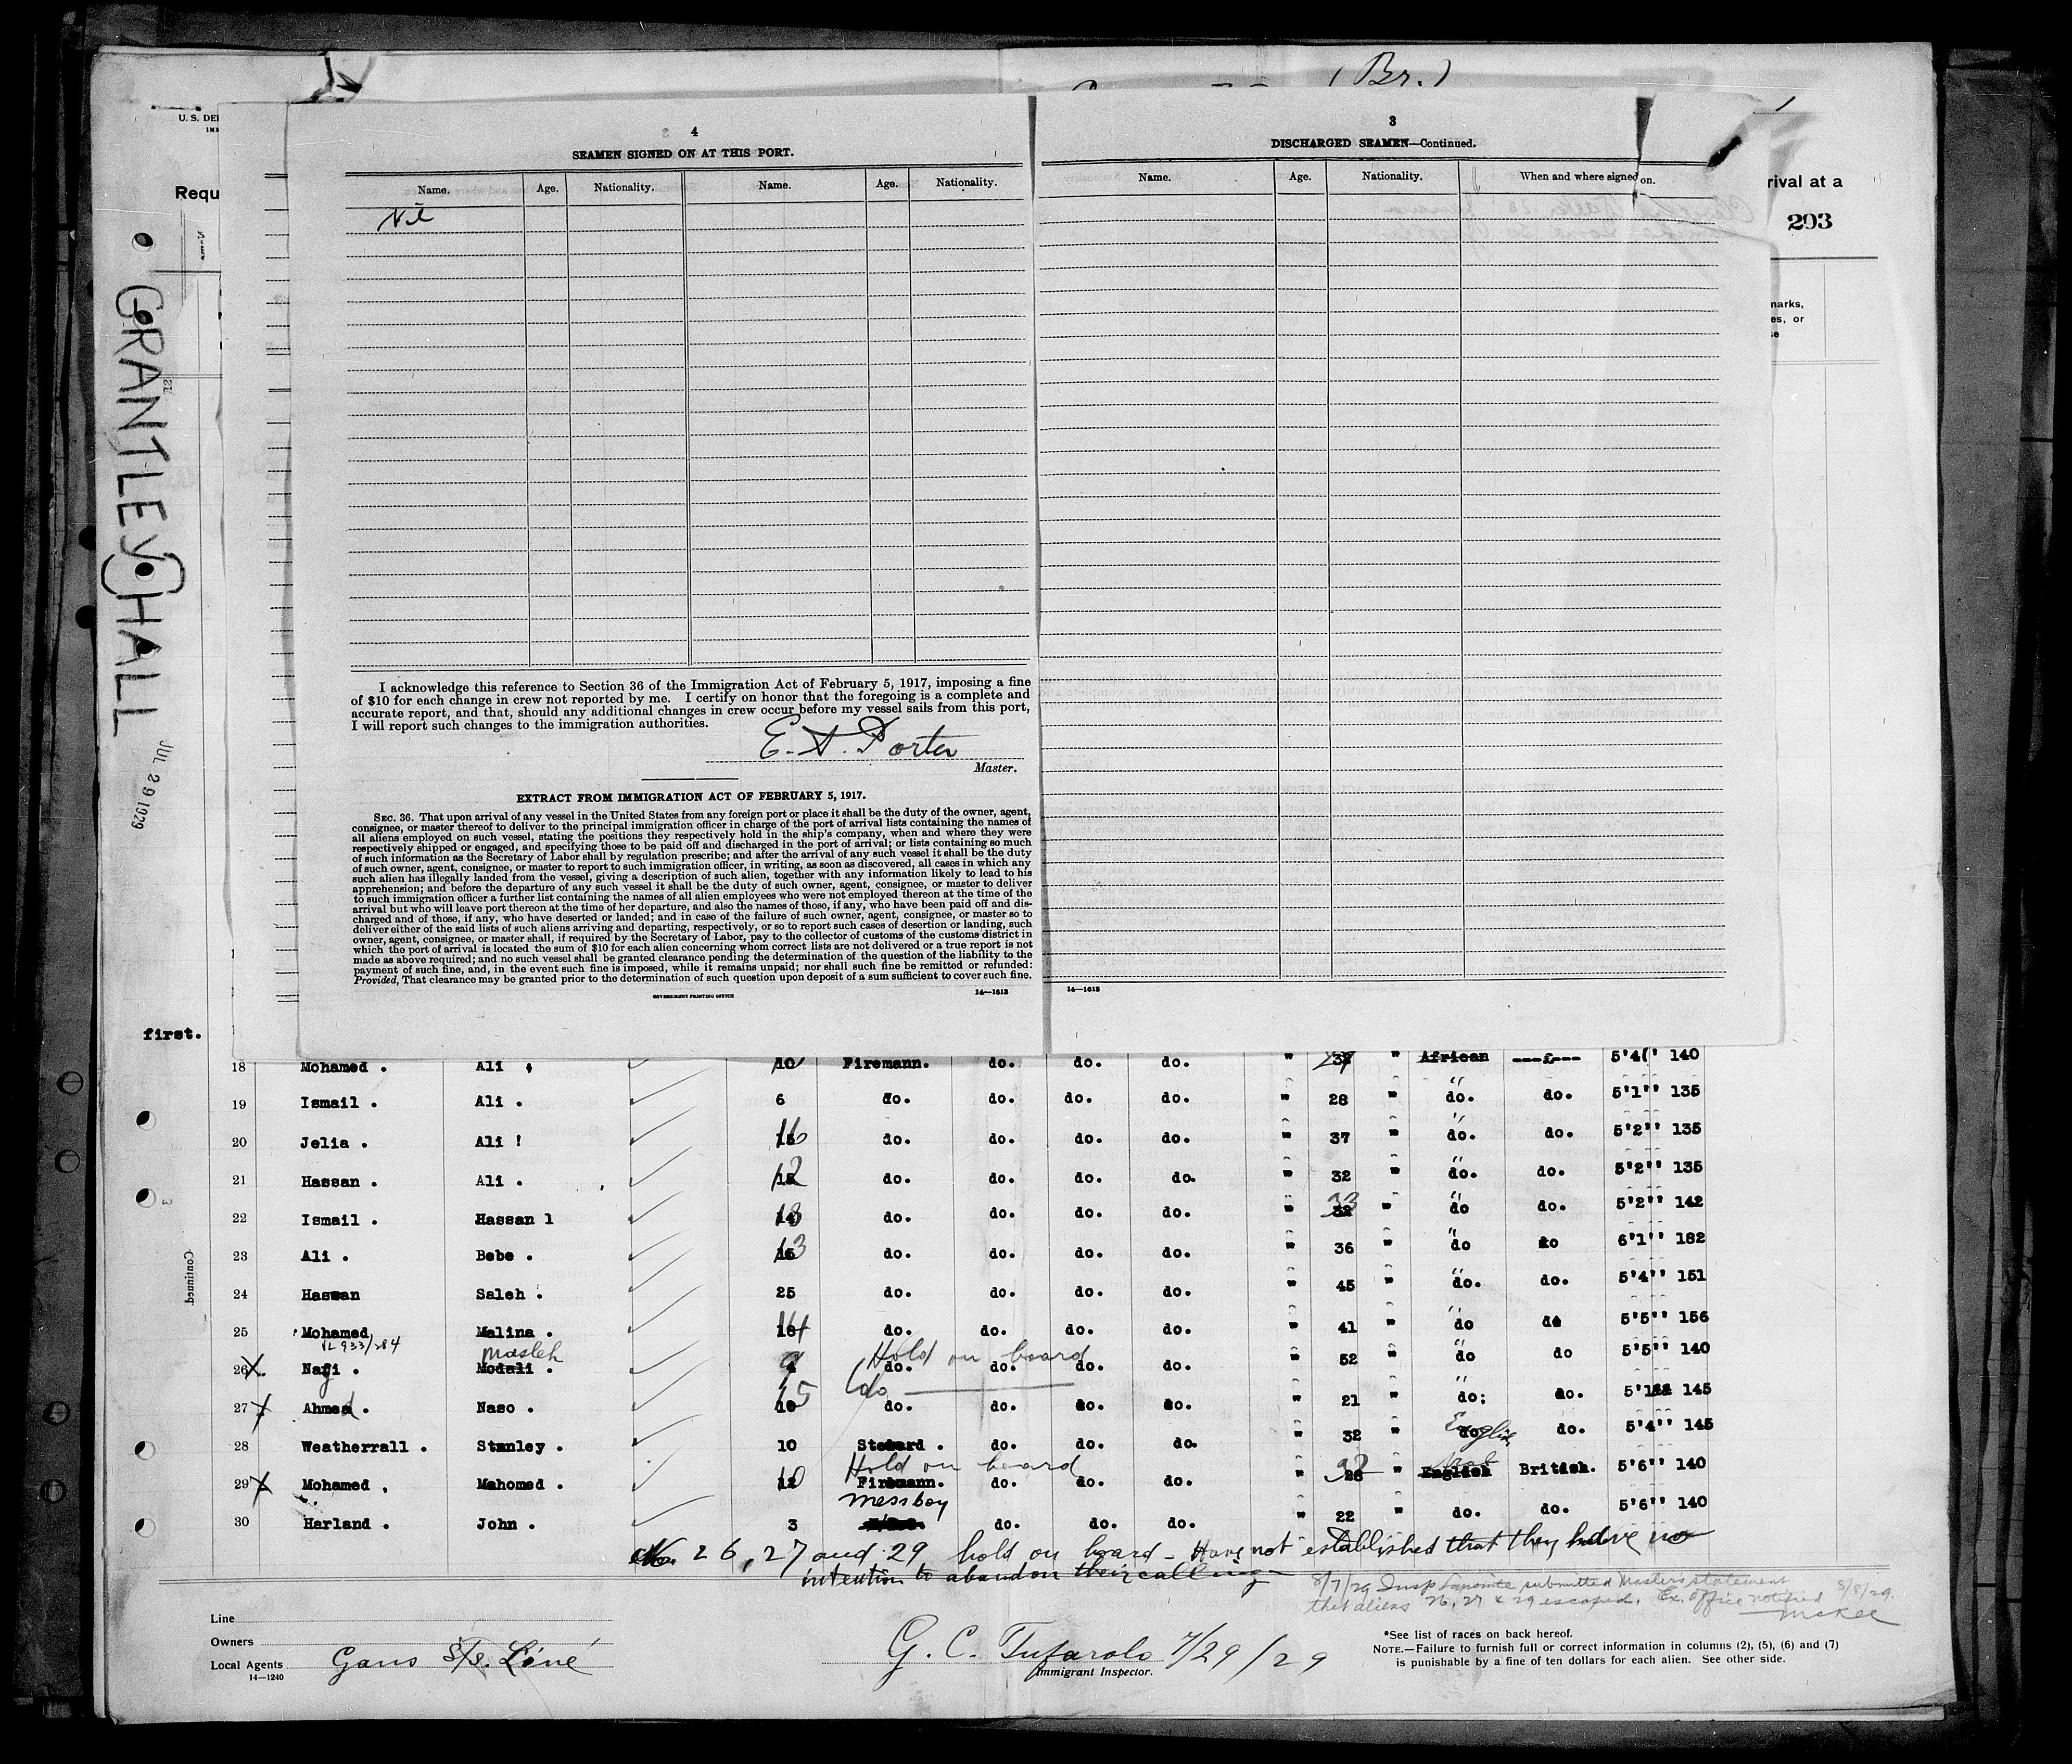 (Br.)
U. S. DE
IM
Requ
rival at a
293
marks,
es, or
se
GRANTLEY HALL
JUL 29 1929
4
SEAMEN SIGNED ON AT THIS PORT.
Name. Age. Nationality. Name. Age. Nationality.
Nil
I acknowledge this reference to Section 36 of the Immigration Act of February 5, 1917, imposing a fine
of $10 for each change in crew not reported by me. I certify on honor that the foregoing is a complete and
accurate report, and that, should any additional changes in crew occur before my vessel sails from this port,
I will report such changes to the immigration authorities.
E. A. Porter
Master.
EXTRACT FROM IMMIGRATION ACT OF FEBRUARY 5, 1917.
SEC. 36. That upon arrival of any vessel in the United States from any foreign port or place it shall be the duty of the owner, agent,
consignee, or master thereof to deliver to the principal immigration officer in charge of the port of arrival lists containing the names of
all aliens employed on such vessel, stating the positions they respectively hold in the ship's company, when and where they were
respectively shipped or engaged, and specifying those to be paid off and discharged in the port of arrival; or lists containing so much
of such information as the Secretary of Labor shall by regulation prescribe; and after the arrival of any such vessel it shall be the duty
of such owner, agent, consignee, or master to report to such immigration officer, in writing, as soon as discovered, all cases in which any
such alien has illegally landed from the vessel, giving a description of such alien, together with any information likely to lead to his
apprehension; and before the departure of any such vessel it shall be the duty of such owner, agent, consignee, or master to deliver
to such immigration officer a further list containing the names of all alien employees who were not employed thereon at the time of the
arrival but who will leave port thereon at the time of her departure, and also the names of those, if any, who have been paid off and dis-
charged and of those, if any, who have deserted or landed; and in case of the failure of such owner, agent, consignee, or master so to
deliver either of the said lists of such aliens arriving and departing, respectively, or so to report such cases of desertion or landing, such
owner, agent, consignee, or master shall, if required by the Secretary of Labor, pay to the collector of customs of the customs district in
which the port of arrival is located the sum of $10 for each alien concerning whom correct lists are not delivered or a true report is not
made as above required; and no such vessel shall be granted clearance pending the determination of the question of the liability to the
payment of such fine, and, in the event such fine is imposed, while it remains unpaid; nor shall such fine be remitted or refunded:
Provided, That clearance may be granted prior to the determination of such question upon deposit of a sum sufficient to cover such fine.
GOVERNMENT PRINTING OFFICE 14—1613
3
DISCHARGED SEAMEN—Continued.
Name. Age. Nationality. When and where signed on.
14—1613
first.
Continued.
18 Mohamed . Ali 10 Firemann. do. do. do. " " African 5'4 140
19 Ismail . Ali . 6 do. do. do. do. " 28 " do. do. 5'1" 135
20 Jelia . Ali ! 16 do. do. do. do. " 37 " do. do. 5'2" 135
21 Hassan . Ali . 12 do. do. do. do. " 32 " do. do. 5'2" 135
22 Ismail . Hassan l 18 do. do. do. do. " 33 " do do. 5'2" 142
23 Ali . Bebe . 13 do. do. do. do. " 36 " do do 6'1" 182
24 Hassan Saleh . 25 do. do. do. do. " 45 " do. do. 5'4" 151
25 Mohamed Malina . 14 do. do. do. do. " 41 " do do 5'5" 156
VL 933/284 Masleh Hold on board
26 X. Nagi . Modali . 9 do. do. do. do. " 52 " do do 5'5" 140
do
27 X Ahmed . Naso . 15 do. do. do. do. " 21 " do; do. 5'1 145
English
28 Weatherrall . Stanley . 10 Steward . do. do. do. " 32 " do. do. 5'4" 145
Hold on board Arab
29 X Mohamed . Mahomed . 10 12 Firemann. do. do. do. " 28 " English British. 5'6" 140
messboy
30 Harland . John . 3 do. do. do. " 22 " do. do. 5'6" 140
Nos. 26, 27 and 29 hold on board - Have not established that they have no
intention to abandon their calling
8/7/29 Insp Lapointe submitted Masters statement
that aliens 26, 27 & 29 escaped. Ex. Office notified 8/8/29.
McKee
Line
Owners
Local Agents Gans S/S. Line
14—1240
G. C. Tufarolo 7/29/29
Immigrant Inspector.
*See list of races on back hereof.
NOTE.—Failure to furnish full or correct information in columns (2), (5), (6) and (7)
is punishable by a fine of ten dollars for each alien. See other side.